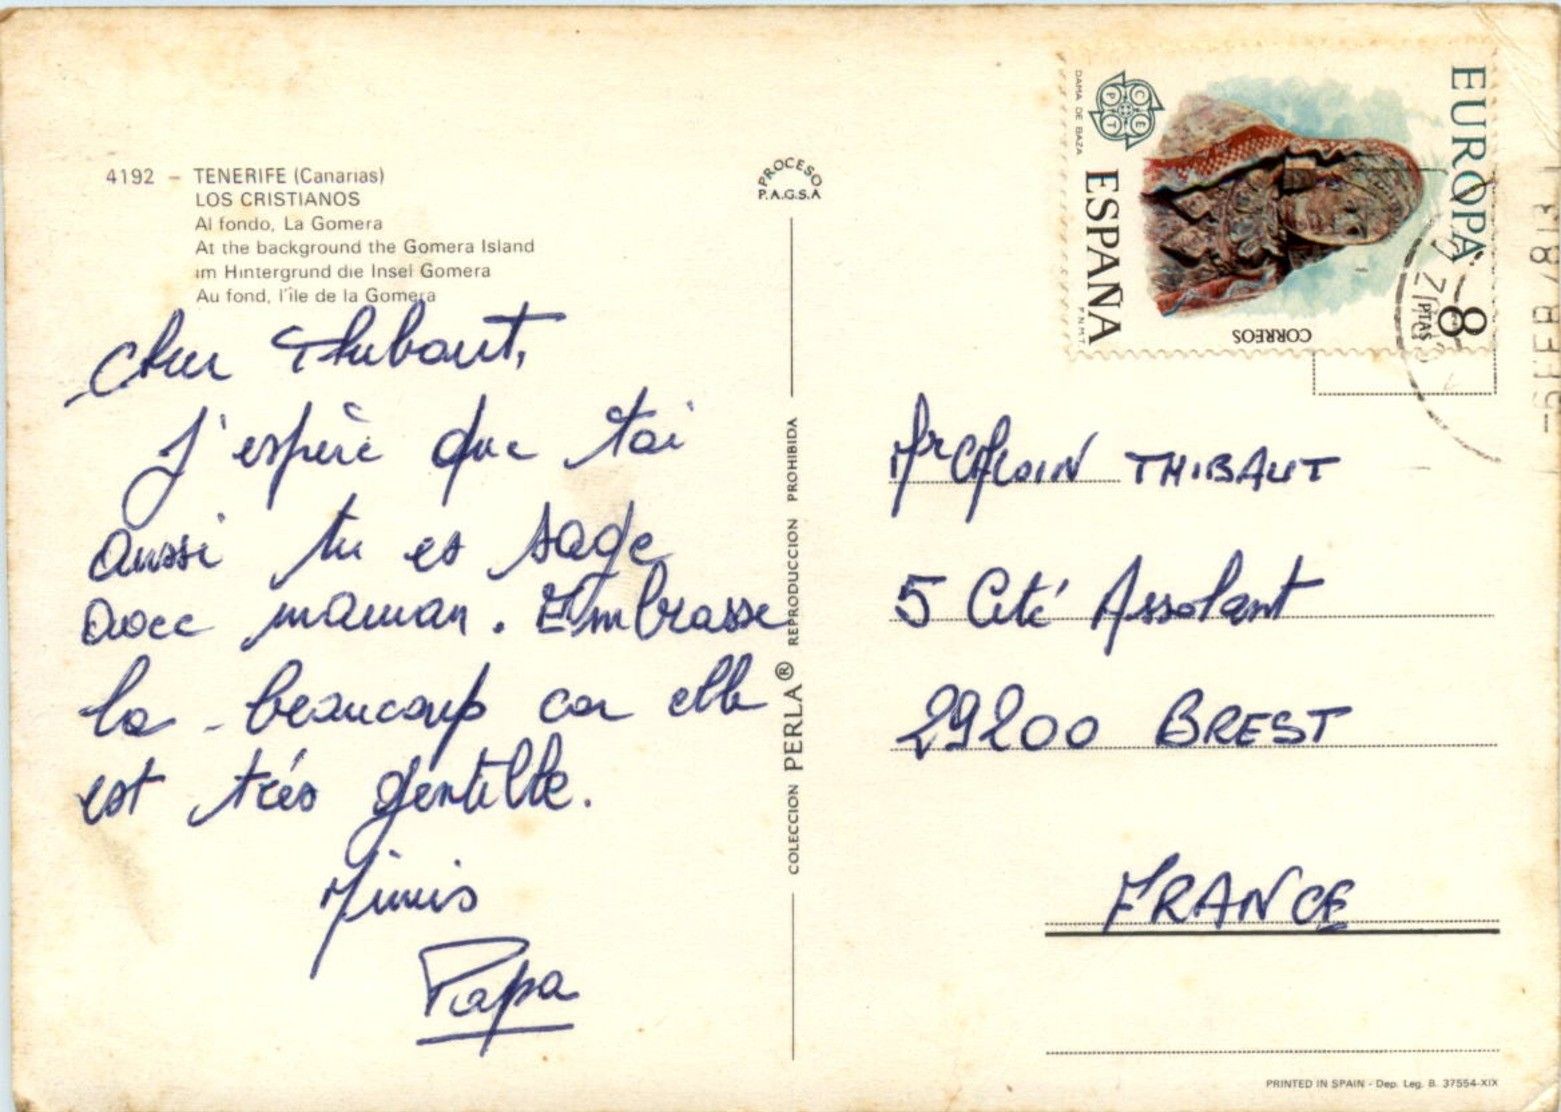 4192 - TENERIFE (Canarias)
LOS CRISTIANOS
Al fondo, La Gomera
At the background the Gomera Island
im Hintergrund die Insel Gomera
Au fond, l'ile de la Gomera
Cher Thibaut,
J'espère que toi
aussi tu es sage
avec maman. Embrasse
la beaucoup car elle
est très gentille.
Mimis
Papa
PROCESO
P.A.G.S.A
COLECCION PERLA® REPRODUCCION PROHIBIDA
EUROPA
8 PTAS
CORREOS
ESPAÑA
F.N.M.T
DAMA DE BAZA
CEPT
Mr THIBAUT
5 Cité Assolant
29200 BREST
FRANCE
PRINTED IN SPAIN - Dep. Leg. B. 37554-XIX